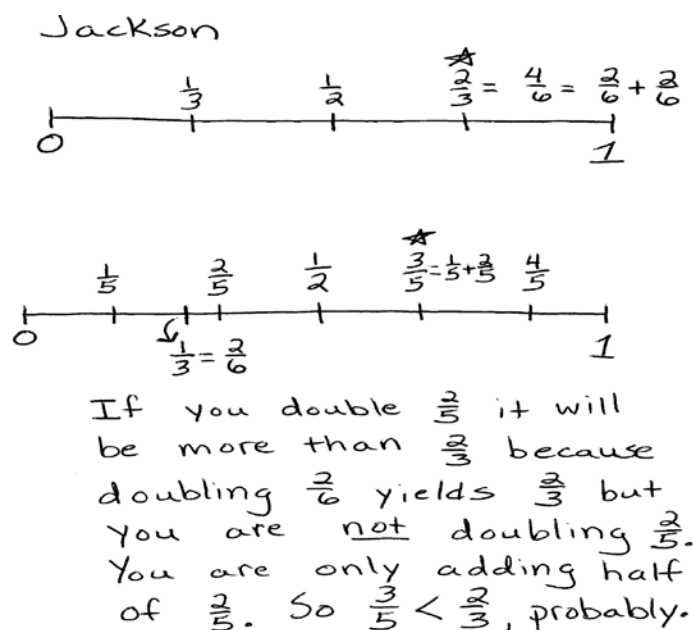 Jackson
1/3 1/2 ☆ 2/3 = 4/6 = 2/6 + 2/6
0 1
1/5 2/5 1/2 ☆ 3/5 = 1/5 + 2/5 4/5
0 1/3 = 2/6 1
If you double 2/5 it will
be more than 2/3 because
doubling 2/6 yields 2/3 but
you are not doubling 2/5.
You are only adding half
of 2/5. So 3/5 < 2/3, probably.